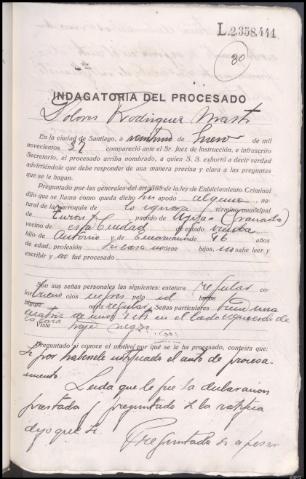 L.2358.444
80
INDAGATORIA DEL PROCESADO
Dolores Rodriguez Marti
En la ciudad de Santiago, a veintiuno de Enero de mil
novecientos 39 compareció ante el Sr. Juez de Instrucción, e infrascrito
Secretario, el procesado arriba nombrado, a quien S. S. exhortó a decir verdad
advirtiéndole que debe responder de una manera precisa y clara a las preguntas
que se le hagan.
Preguntado por las generales del artículo de la ley de Enjuiciamiento Criminal
dijo que se llama como queda dicho sin apodo alguno
natural de la parroquia de lo ignora término municipal
de partido de
vecino de esta Ciudad de estado viuda
hijo de Antonio y de de 46 años
de edad, profesión hijos, leer y
escribir y no fué procesado
Son sus señas personales las siguientes: estatura regular
ojos negros pelo id
regular señas particulares Tiene una
cicatriz de en el lado izquierdo de
la cara
Viste traje negro
Preguntado si conoce el motivo por que se le ha procesado, contesta que:
Si por habersele notificado el auto de procesa-
miento.
Leida que le fue la declaracion
prestada y preguntado si la ratifica
dijo que si.
Preguntado si a pesar